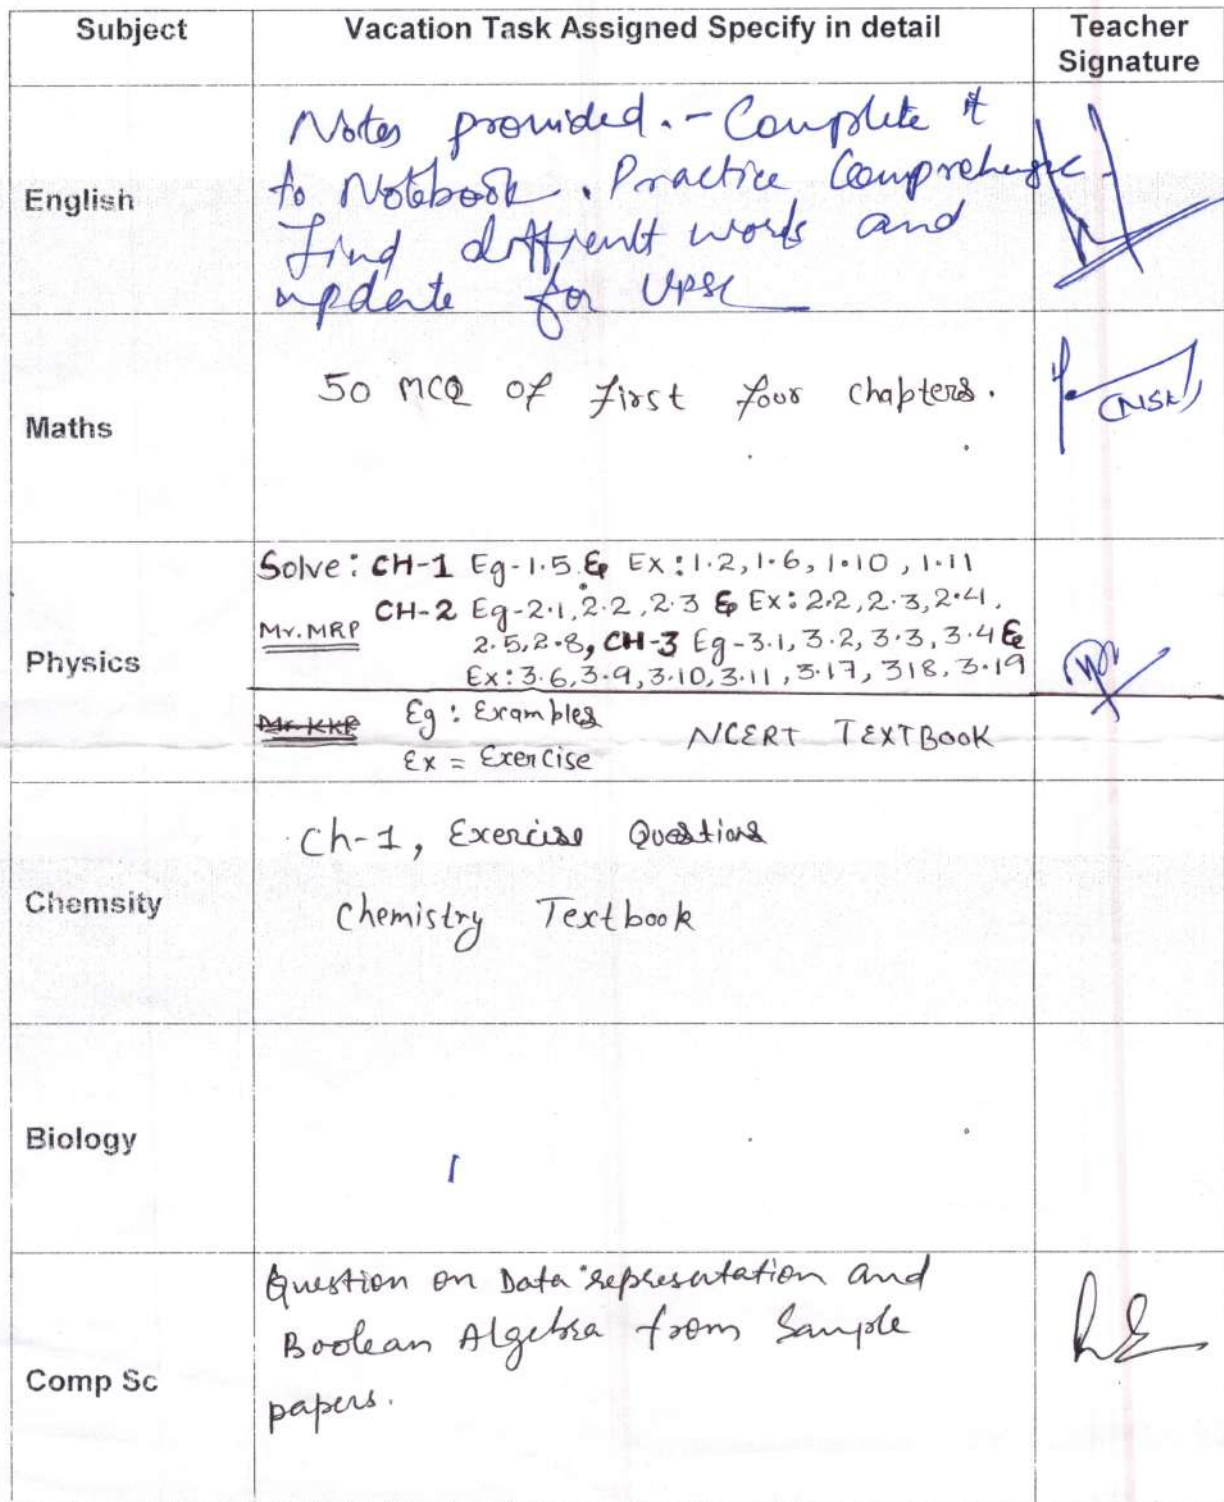 Subject Vacation Task Assigned Specify in detail Teacher
Signature
Notes provided. - Complete it
English to Notebook. Practice Comprehensive
find diffrent words and
update for UPSC
Maths 50 MCQ of first four chapters.
(NSK)
Solve: CH-1 Eg-1.5 & Ex: 1.2, 1.6, 1.10, 1.11
CH-2 Eg-2.1, 2.2, 2.3 & Ex: 2.2, 2.3, 2.4,
Mr. MRP 2.5, 2.8, CH-3 Eg-3.1, 3.2, 3.3, 3.4 &
Physics Ex: 3.6, 3.9, 3.10, 3.11, 3.17, 318, 3.19
Mr. KKP Eg: Examples NCERT TEXTBOOK
Ex = Exercise
Ch-1, Exercise Questions
Chemsity Chemistry Textbook
Biology
Question on Data representation and
Boolean Algebra from Sample
Comp Sc papers.